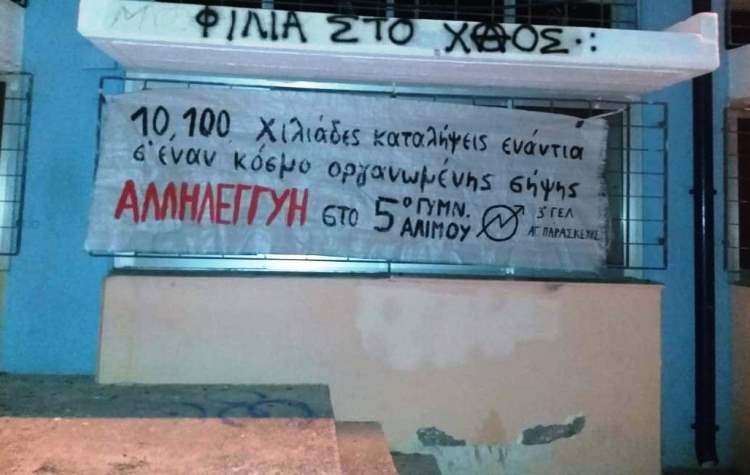 ΦΙΛΙΑ ΣΤΟ ΧΑΟΣ
10, 100 χιλιάδες καταλήψεις ενάντια
σ' έναν κόσμο οργανωμένης σήψης
ΑΛΛΗΛΕΓΓΥΗ στο 5ο ΓΥΜΝ. ΑΛΙΜΟΥ
3ο ΓΕΛ
ΑΓ. ΠΑΡΑΣΚΕΥΗΣ